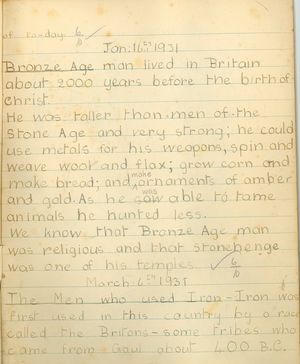 of to-day. 6/10
Jan: 16th 1931
Bronze Age man lived in Britain
about 2000 years before the birth of
Christ.
He was taller than men of the
Stone Age and very strong; he could
use metals for his weapons, spin and
weave wool and flax; grow corn and
make bread; and make ornaments of amber
and gold. As he was able to tame
animals he hunted less.
We know that Bronze Age man
was religious and that stonehenge
was one of his temples. 6/10
March 6th 1931
The Men who used Iron - Iron was
first used in this country by a race
called the Britons - some tribes who
came from Gaul about 400 B.C.